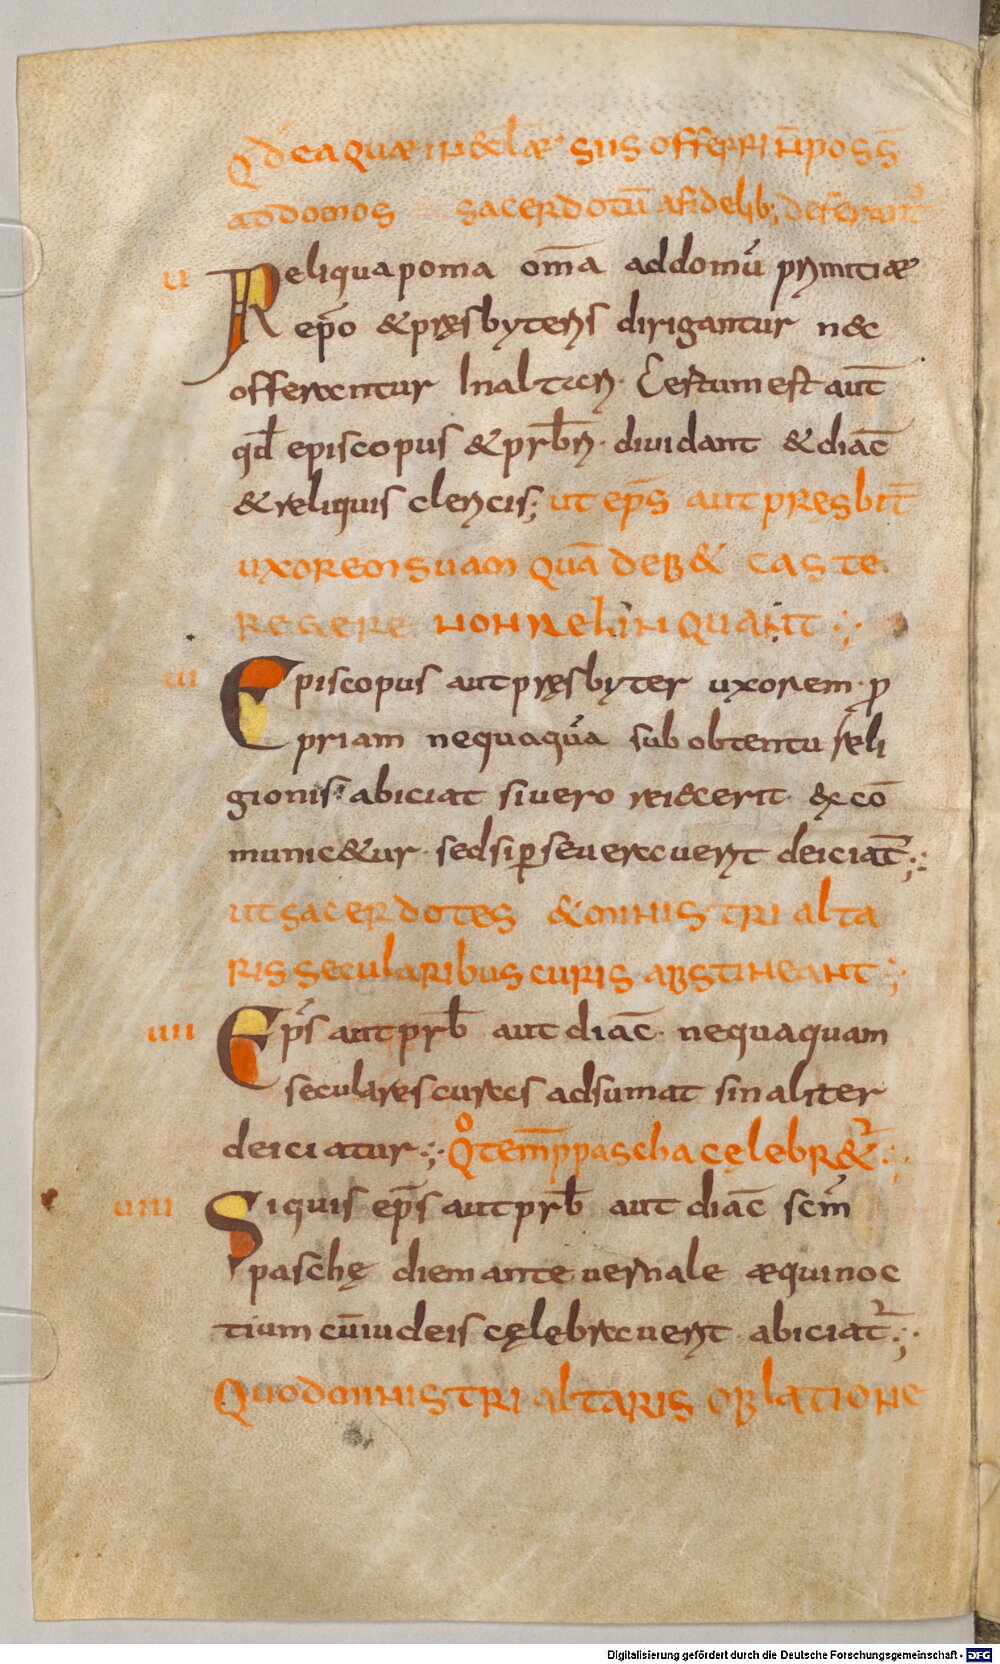 Qd ea quæ in ecl̄æ siis offerri n̄ poss̄
ad domos sacerdotū a fidelib; deferant̄
u Reliqua poma om̄a ad domū primitiæ
ep̄o & pręsbyteris dirigantur nec
offerantur In altari. Certum est aut̄
qd̄ episcopus & prb̄ri. diuidant & diac̄
& reliquis clericis; ut ep̄s aut pręsbit̄
uxorem suam quā deb& caste
regere non relinquant :;
ui Episcopus aut pręsbyter uxorem. ꝓ
priam nequaquā sub obtentu reli
gionis abiciat si uero reiecerit. excō
munic&ur. sed si ꝑseuerauerit deiciat̄:;
ut sacerdotes & ministri alta
ris secularibus curis abstineant:;
uii Ep̄s aut prb̄ aut diac̄. nequaquam
seculares curas adsumat sin aliter
deiciatur:; Qo temp̄ pascha cęlebr&ur:;
uiii Si quis ep̄s aut prb̄ aut diac̄ scm̄
paschę diem ante uernale æquinoc
tium cū iudeis cęlebrauerit. abiciat̄:;
Quod ministri altaris oblatione
Digitalisierung gefördert durch die Deutsche Forschungsgemeinschaft - DFG